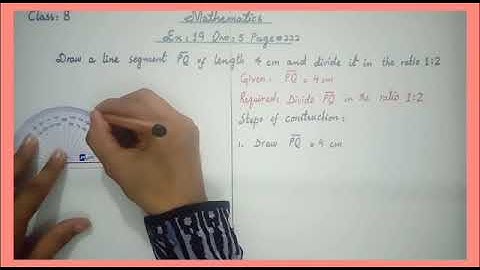 Class: 8
Mathematics
Ex: 19 Qno: 5 Page#222
Draw a line segment PQ of length 4 cm and divide it in the ratio 1:2
Given: PQ = 4 cm
Required: Divide PQ in the ratio 1:2
Steps of contruction:
1. Draw PQ = 4 cm